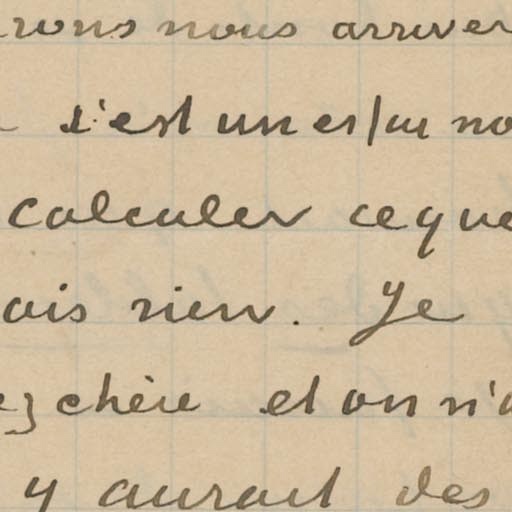 rons nous arriver
s'est un es/ou no
calculer ce que
ois rien. Je
ez chère et on n'a
y aurait des